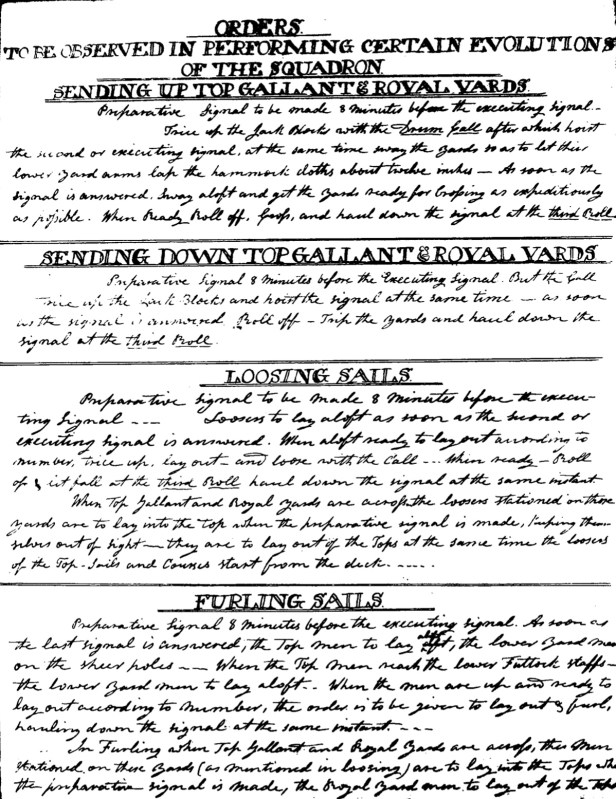 ORDERS.
TO BE OBSERVED IN PERFORMING CERTAIN EVOLUTIONS
OF THE SQUADRON.
SENDING UP TOP GALLANT & ROYAL YARDS.
Preparative Signal to be made 8 Minutes before the executing signal.
Trice up the Jack Blocks with the Drum Call after which hoist
the second or executing signal, at the same time sway the Yards so as to let their
lower Yard arms lap the hammock cloths about twelve inches — As soon as the
signal is answered, Sway aloft and get the Yards ready for Crossing as expeditiously
as possible. When Ready Roll off, Cross, and haul down the signal at the third Roll
SENDING DOWN TOP GALLANT & ROYAL YARDS
Preparative Signal 8 Minutes before the Executing Signal. Beat the Call
trice up the Jack Blocks and hoist the signal at the same time — as soon
as the signal is answered, Roll off — Trip the Yards and haul down the
signal at the third Roll.
LOOSING SAILS.
Preparative signal to be made 8 Minutes before the execu-
ting Signal --- Loosers to lay aloft as soon as the second or
executing signal is answered. When aloft ready to lay out according to
number, trice up, lay out and loose with the Call --- When ready — Roll
off & let fall at the third Roll haul down the signal at the same instant
When Top Gallant and Royal Yards are across, the loosers stationed on those
yards are to lay into the top when the preparative signal is made, keeping them-
selves out of sight — they are to lay out of the Tops at the same time the loosers
of the Top-Sails and Courses start from the deck. ----
FURLING SAILS.
Preparative Signal 8 Minutes before the executing signal. As soon as
the last signal is answered, the Top men to lay aloft, the lower Yard men
on the sheer poles -- When the Top Men reach the lower Futtock staffs —
the lower Yard men to lay aloft -- When the men are up and ready to
lay out according to number, the order is to be given to lay out & furl,
hauling down the signal at the same instant. ---
In Furling when Top Gallant and Royal Yards are across, the Men
stationed on these Yards (as mentioned in loosing) are to lay into the Tops when
the preparative signal is made, the Royal Yard men to lay out of the Tops